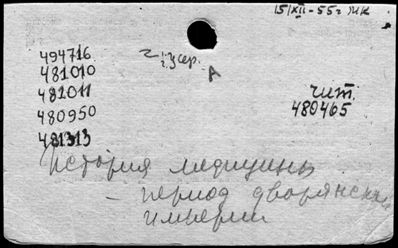 15/XII-55г ЖК
494716
481010
481011
480950
481313
г. 1.Uсер.
А
чит.
480465
История медицины
- период дворянской
империи